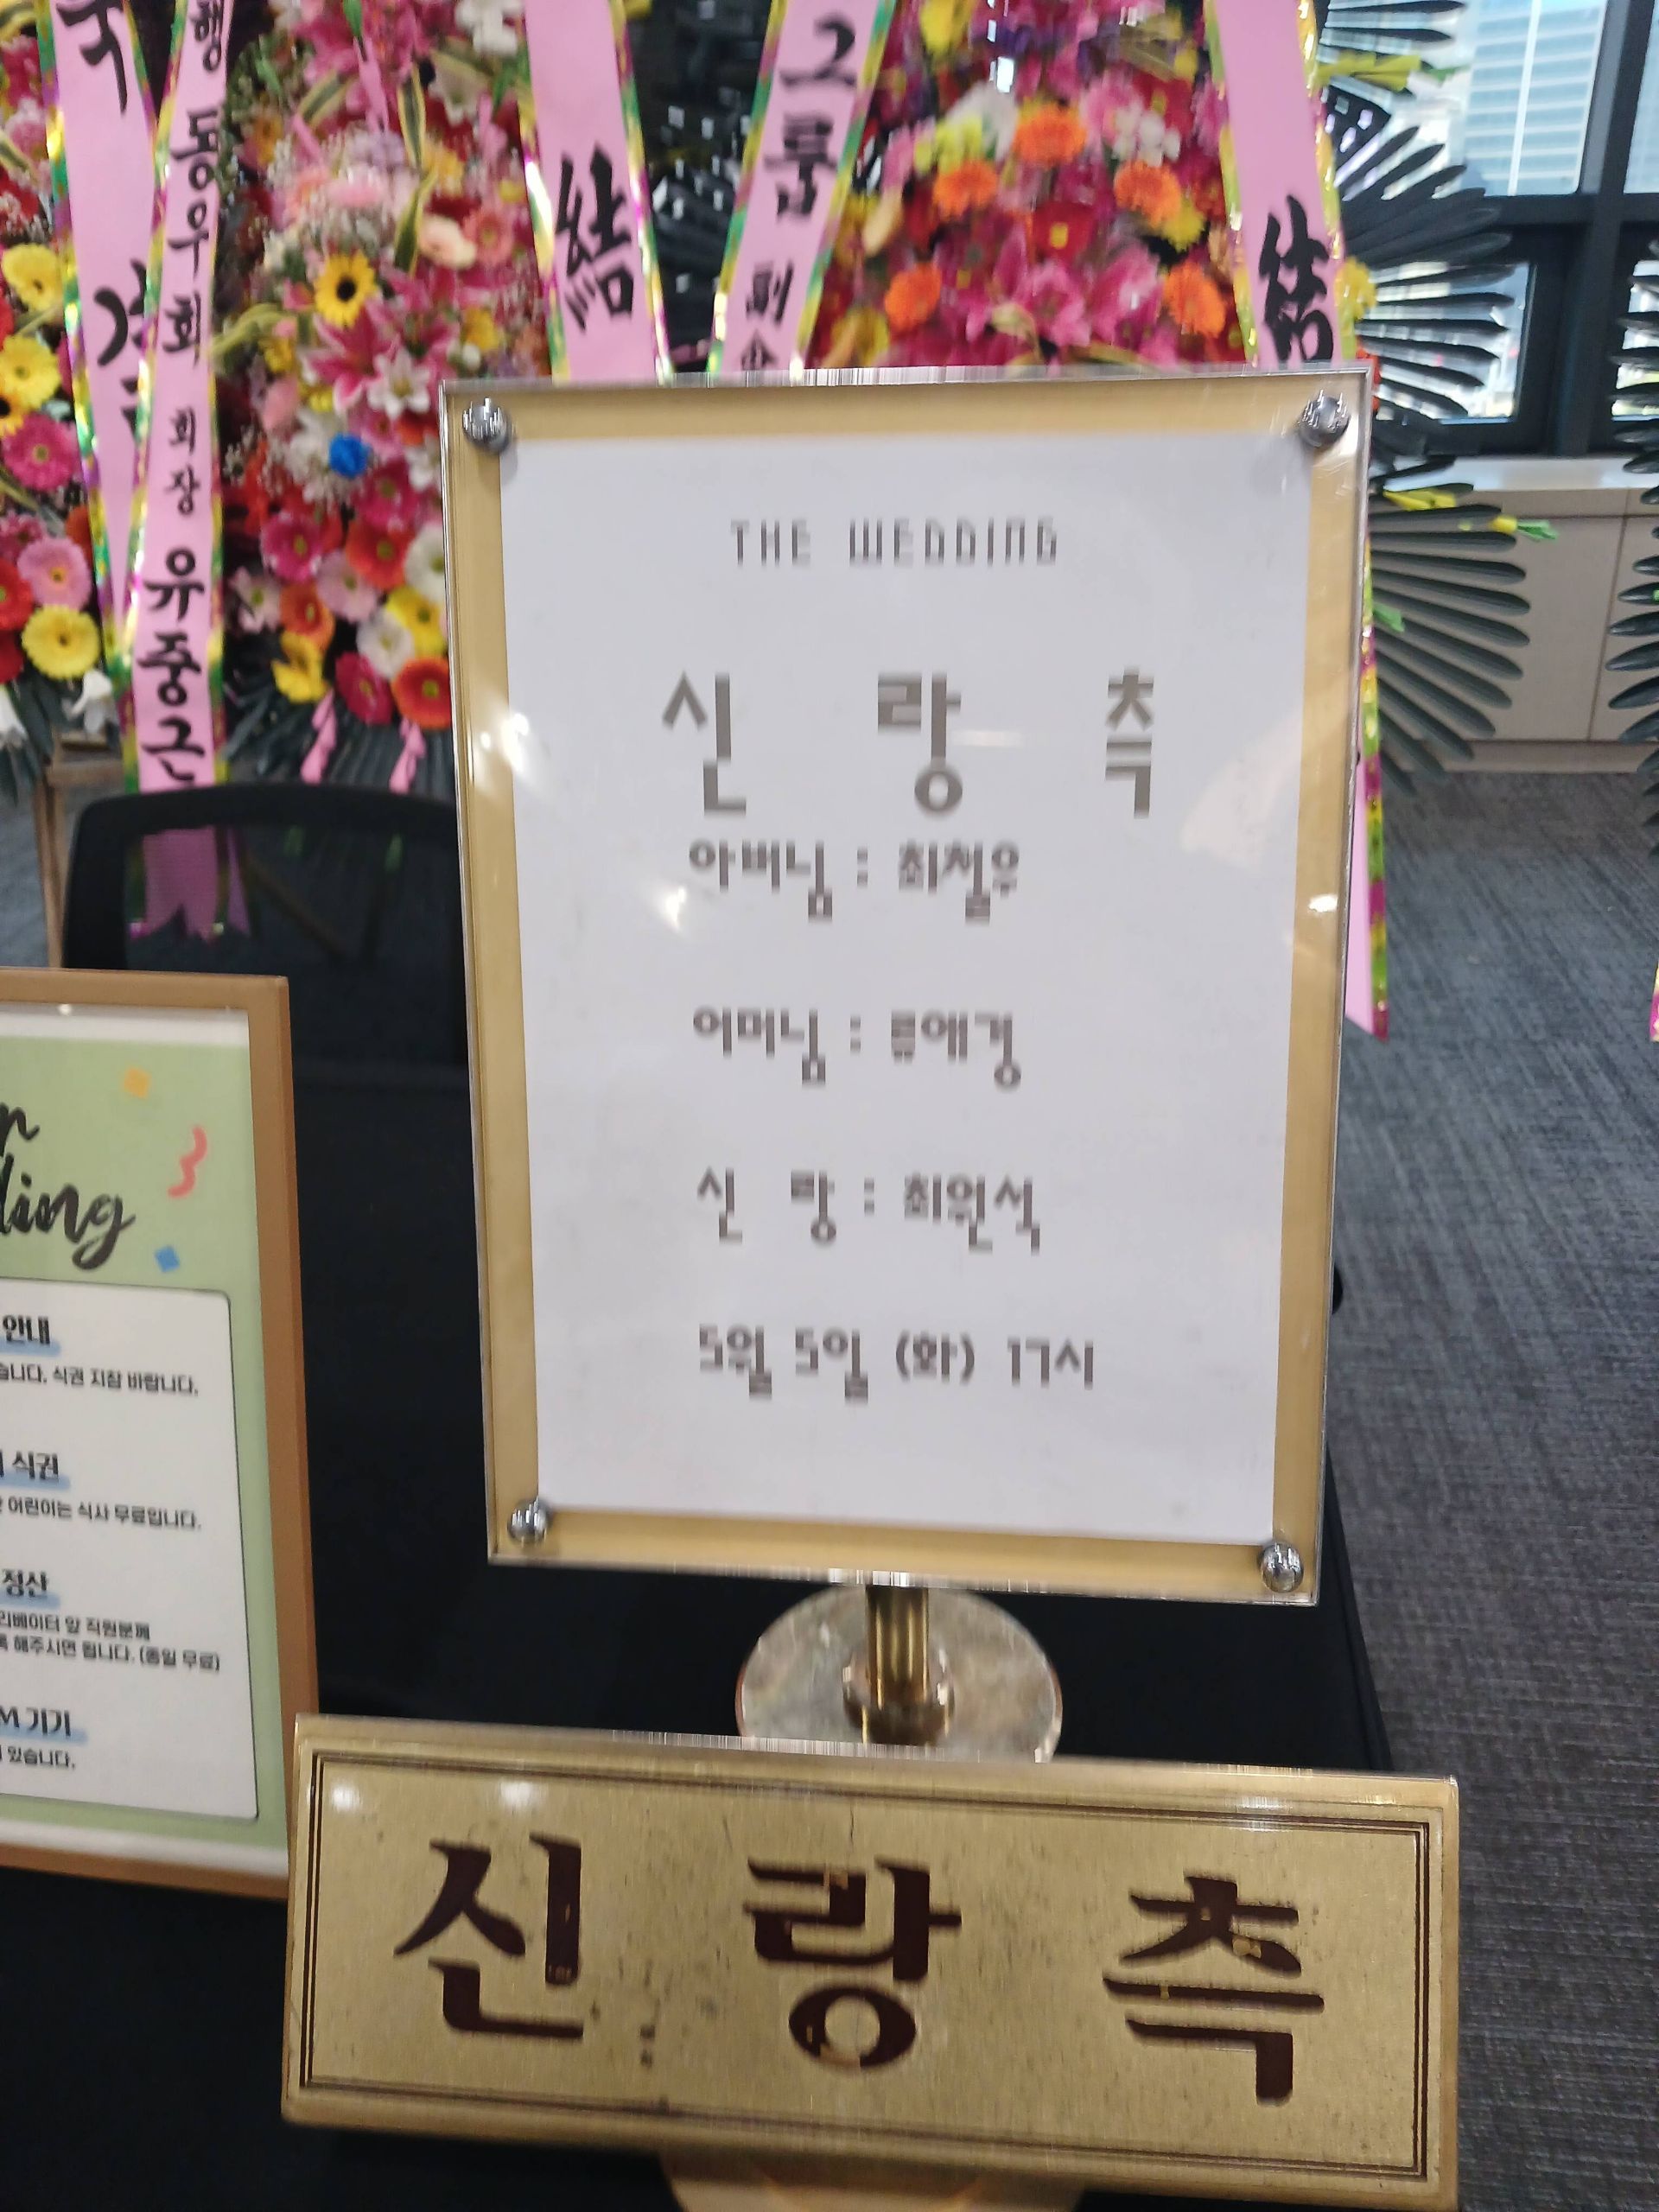 행 동우회 회장 유중근
結
그룹 副
結
THE WEDDING
신 랑 측
아버님 : 최철우
어머님 : 류애경
신 랑 : 최원석
5월 5일 (화) 17시
ding
안내
습니다. 식권 지참 바랍니다.
식권
어린이는 식사 무료입니다.
정산
리베이터 앞 직원분께
록 해주시면 됩니다. (종일 무료)
M 기기
있습니다.
신 랑 측